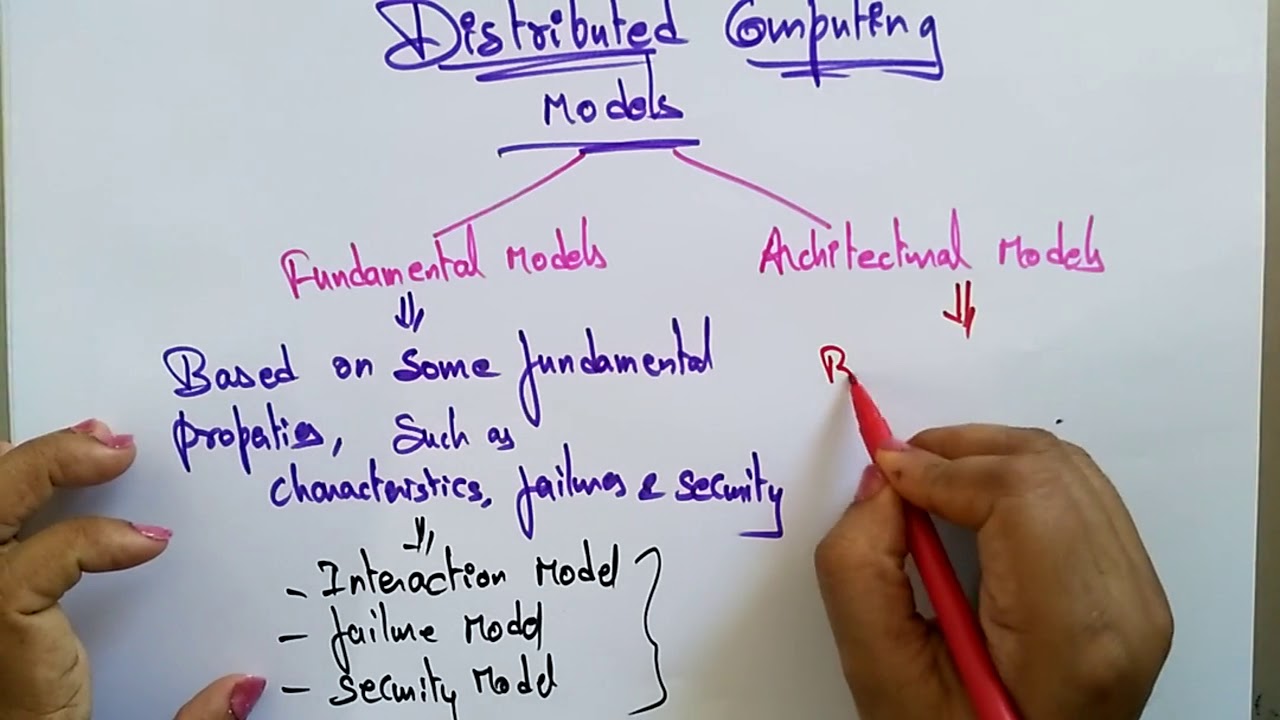 Distributed Computing
Models
Fundamental Models
Architectural Models
Based on some fundamental
properties, such as
characteristics, failures & security
- Interaction Model
- failure Model
- security Model
B